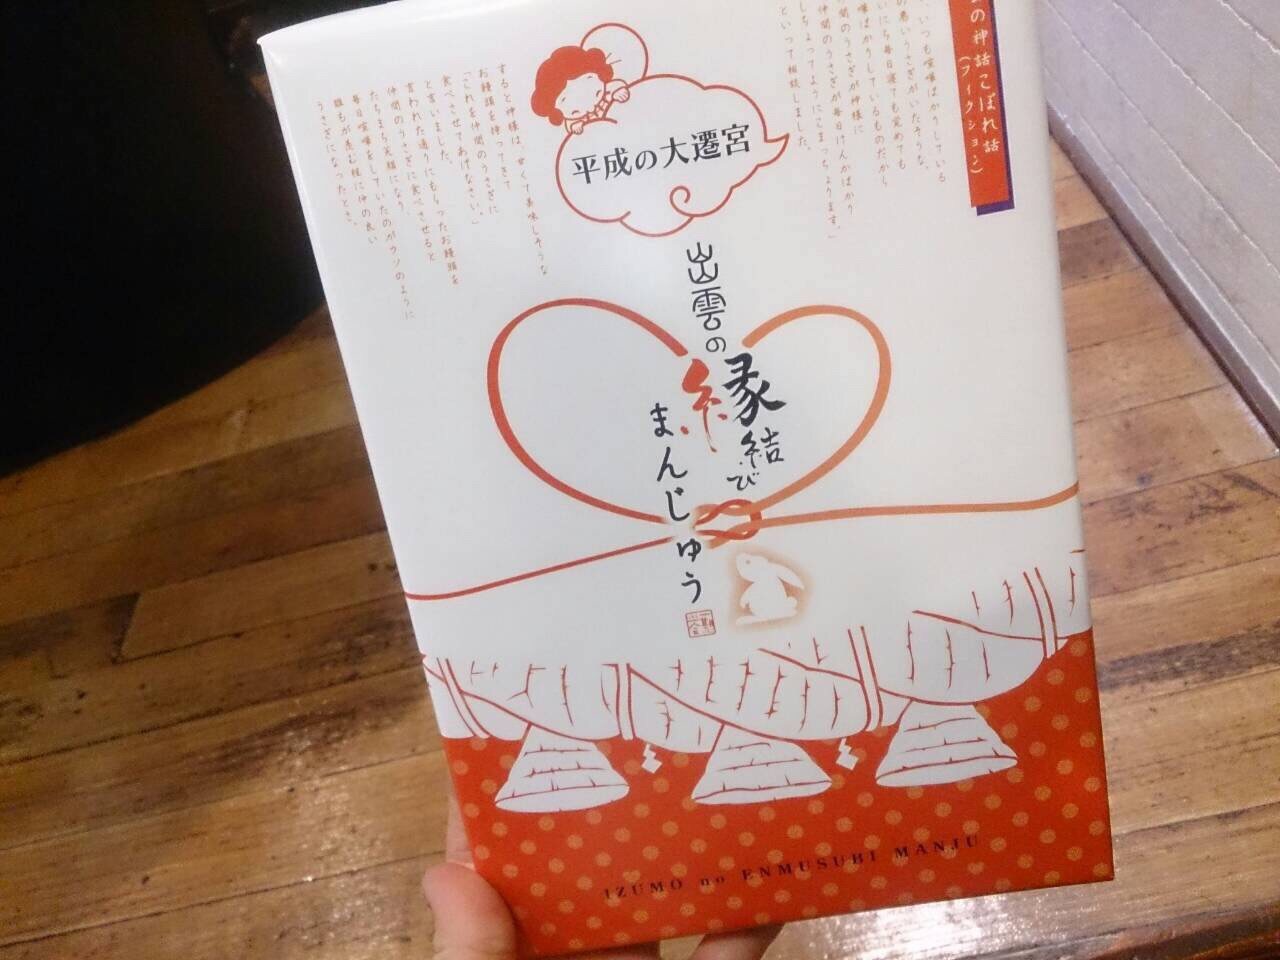 の神話こぼれ話
(フィクション)
いつも喧嘩ばかりしている
の悪いうさぎがいたそうな。
いにち毎日寝ても覚めても
嘩ばかりしているものだから
間のうさぎが神様に
仲間のうさぎが毎日けんかばかり
しちょってようにこまっちょります。」
といって相談しました。
平成の大遷宮
すると神様は、甘くて美味しそうな
お饅頭を持ってきて
「これを仲間のうさぎに
食べさせてあげなさい。」
と言いました。
言われた通りにもらったお饅頭を
仲間のうさぎに食べさせると
たちまち笑顔になり、
毎日喧嘩をしていたのがウソのように
誰もが羨む程に仲の良い
うさぎになったとさ。
出雲の
縁結び
まんじゅう
IZUMO no ENMUSUBI MANJU